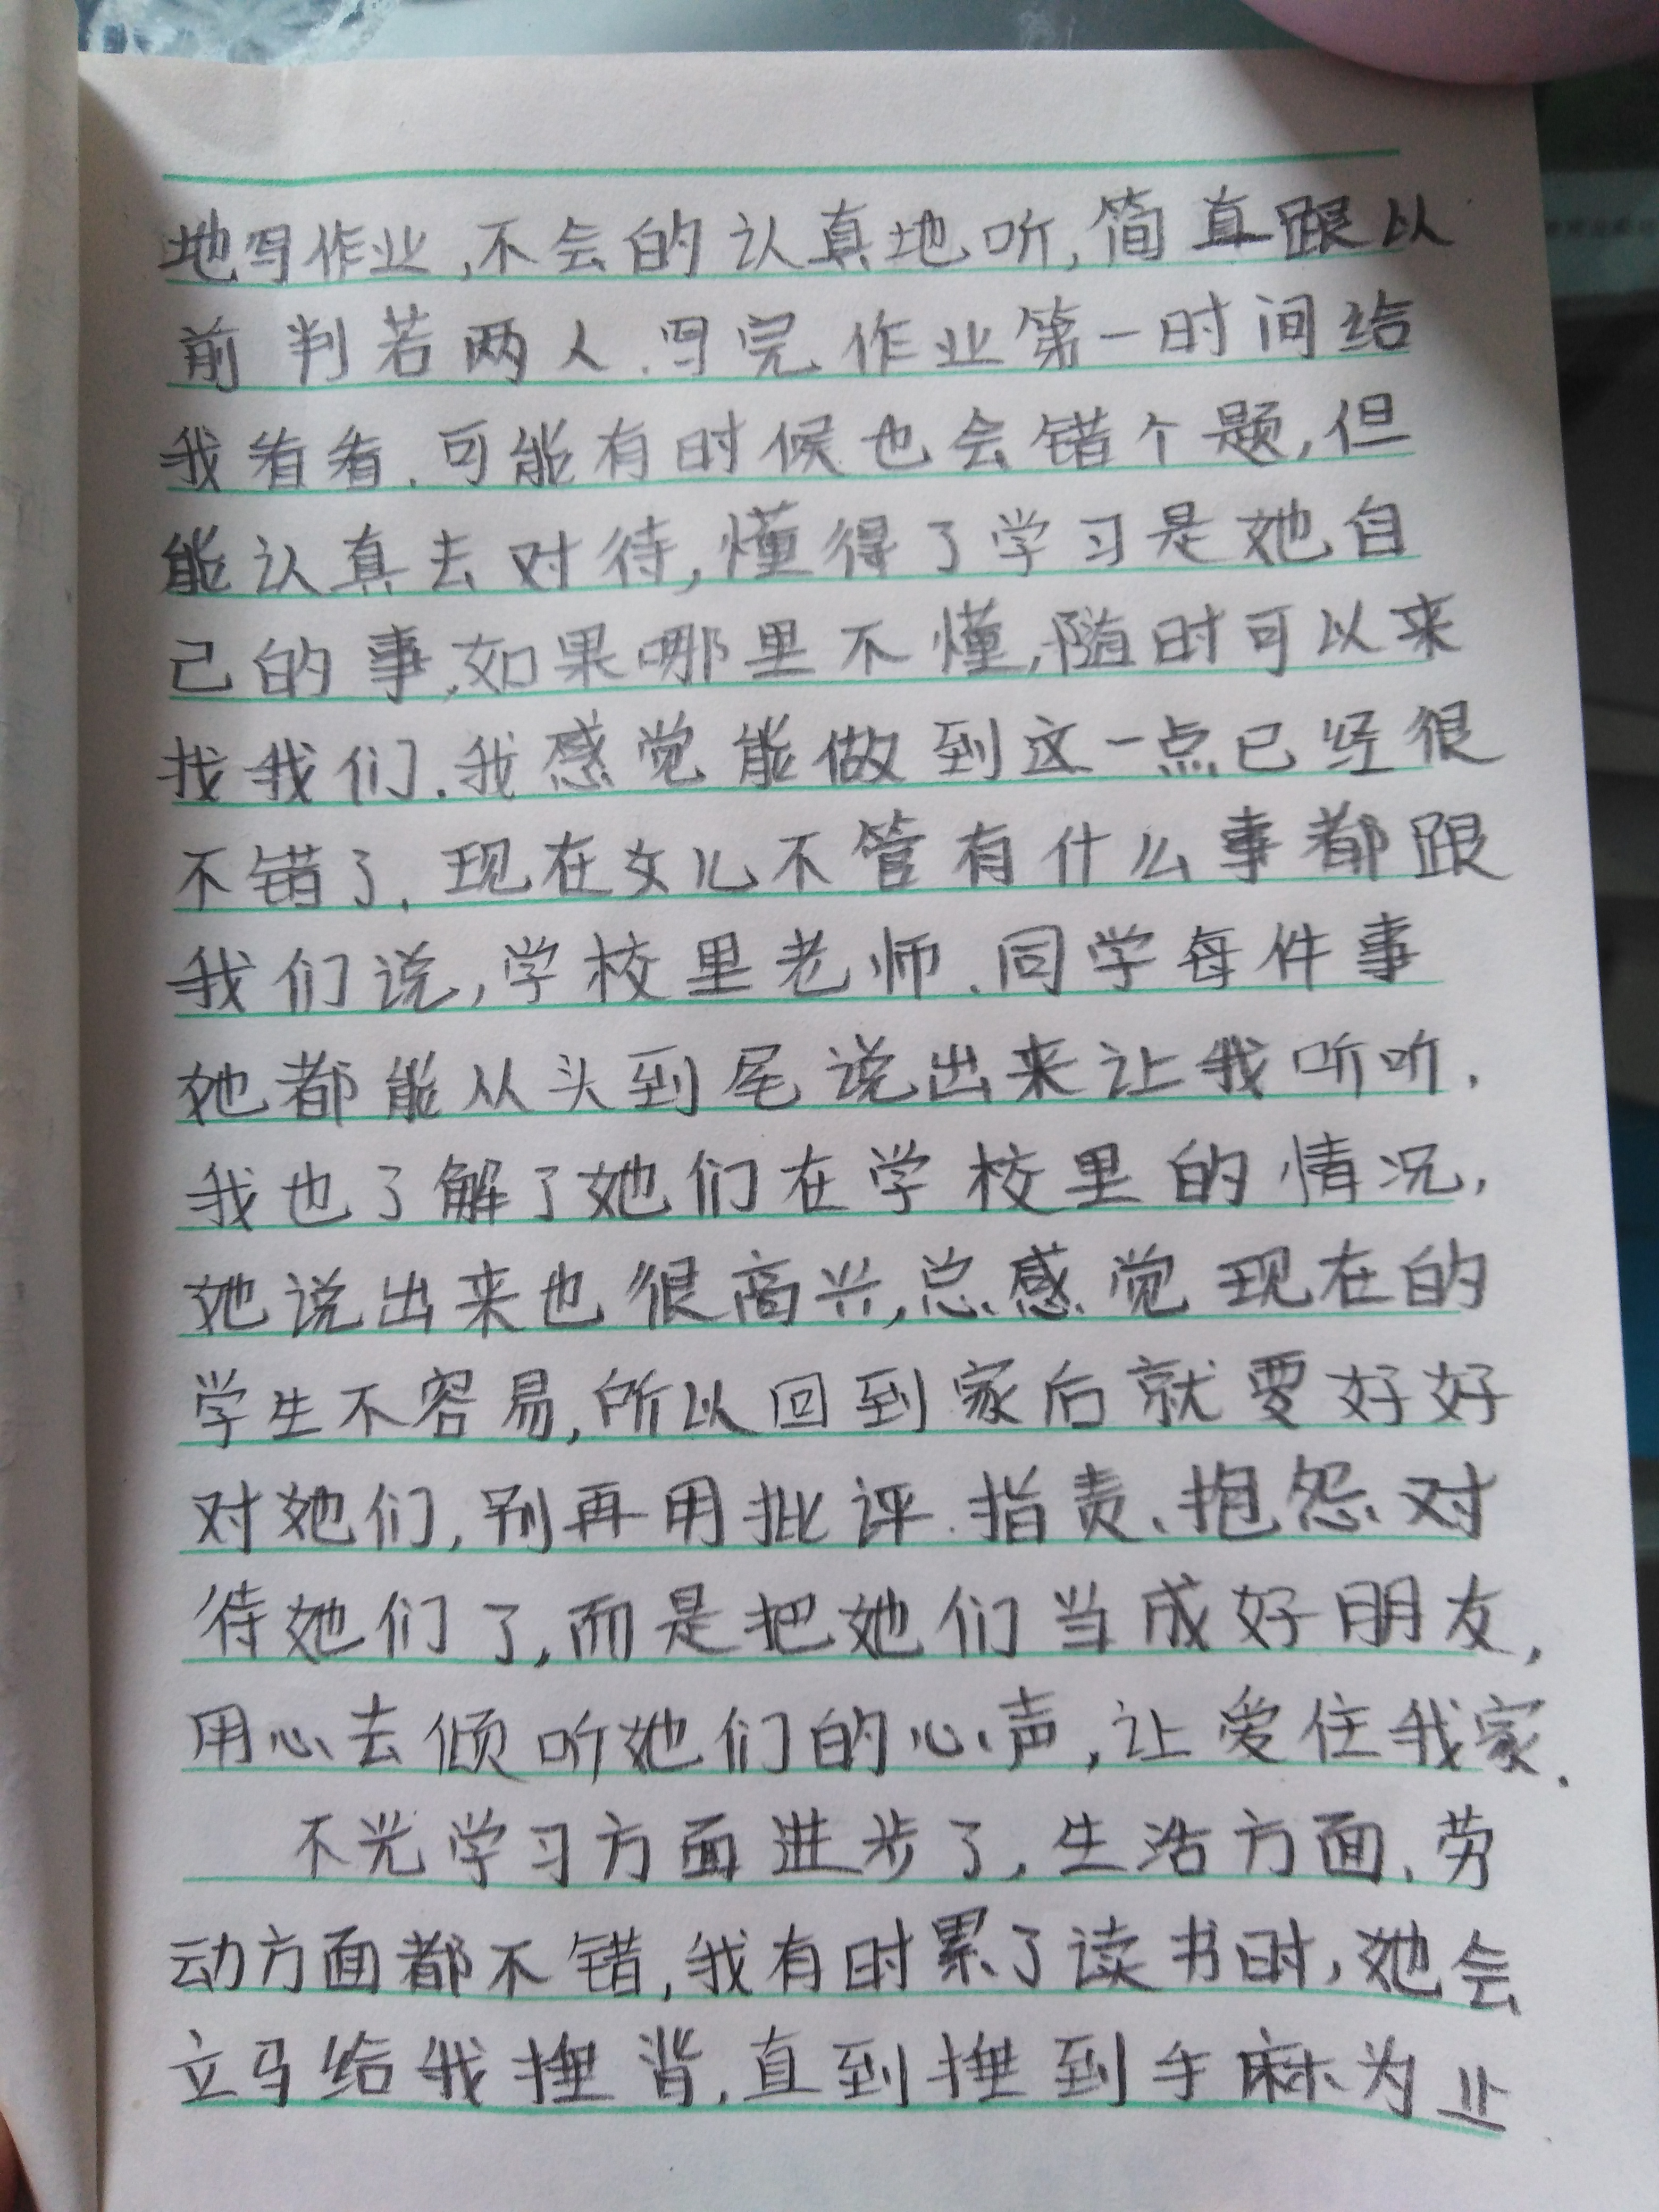 地写作业,不会的认真地听,简直跟以
前判若两人.写完作业第一时间给
我看看.可能有时候也会错个题,但
能认真去对待,懂得了学习是她自
己的事,如果哪里不懂,随时可以来
找我们.我感觉能做到这一点已经很
不错了.现在女儿不管有什么事都跟
我们说,学校里老师.同学每件事
她都能从头到尾说出来让我听听.
我也了解了她们在学校里的情况,
她说出来也很高兴,总感觉现在的
学生不容易,所以回到家后就要好好
对她们,别再用批评.指责、抱怨对
待她们了,而是把她们当成好朋友,
用心去倾听她们的心声,让爱住我家.
不光学习方面进步了,生活方面.劳
动方面都不错,我有时累了读书时,她会
立马给我捶背,直到捶到手麻为止